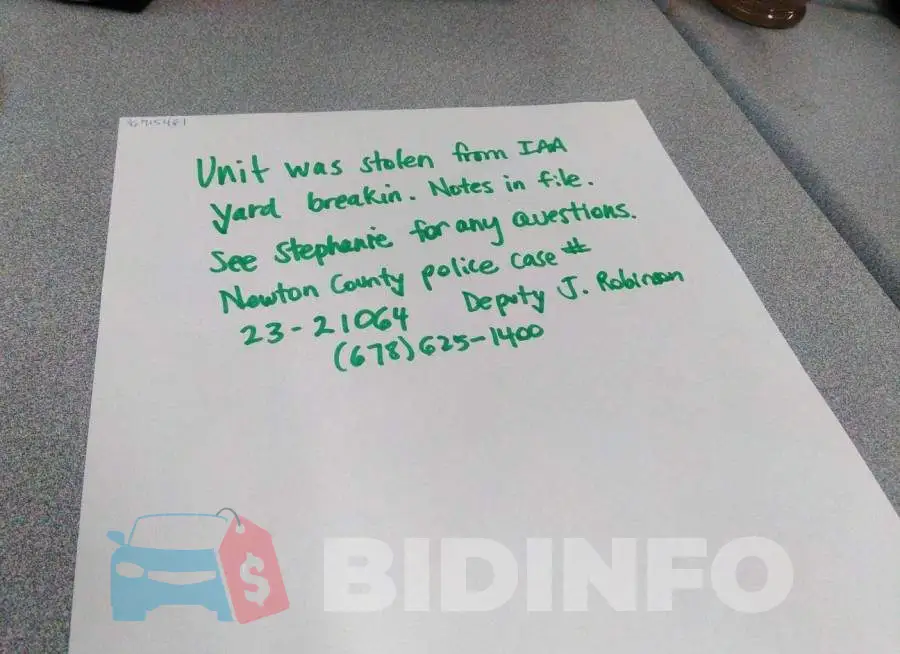 Unit was stolen from IAA
yard breakin. Notes in file.
See Stephanie for any questions.
Newton County police case #
23-21064 Deputy J. Robinson
(678)625-1400
$
BIDINFO